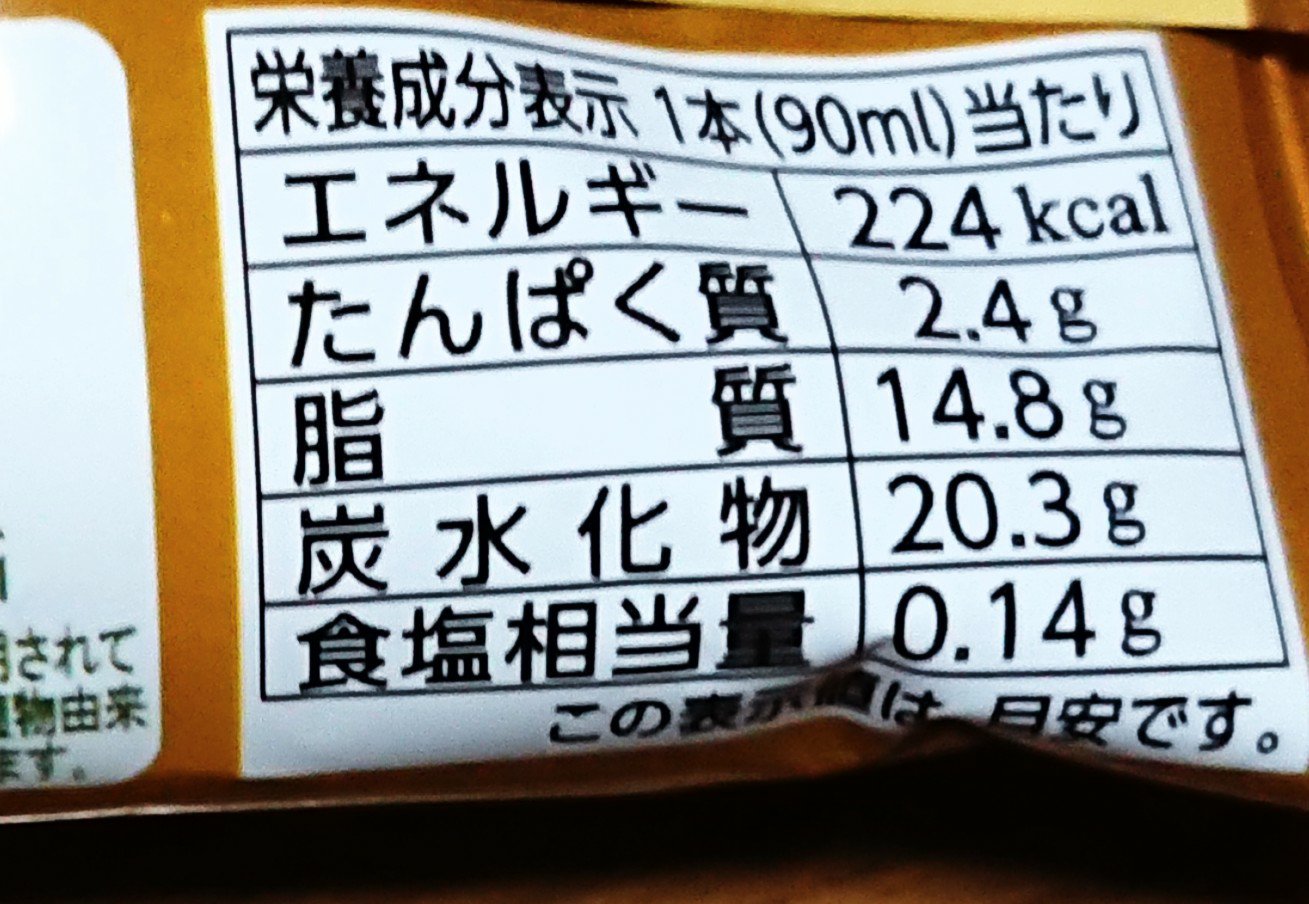 栄養成分表示 1本(90ml)当たり
エネルギー 224kcal
たんぱく質 2.4g
脂質 14.8g
炭水化物 20.3g
食塩相当量 0.14g
この表示値は、目安です。
されて
物由来
ます。